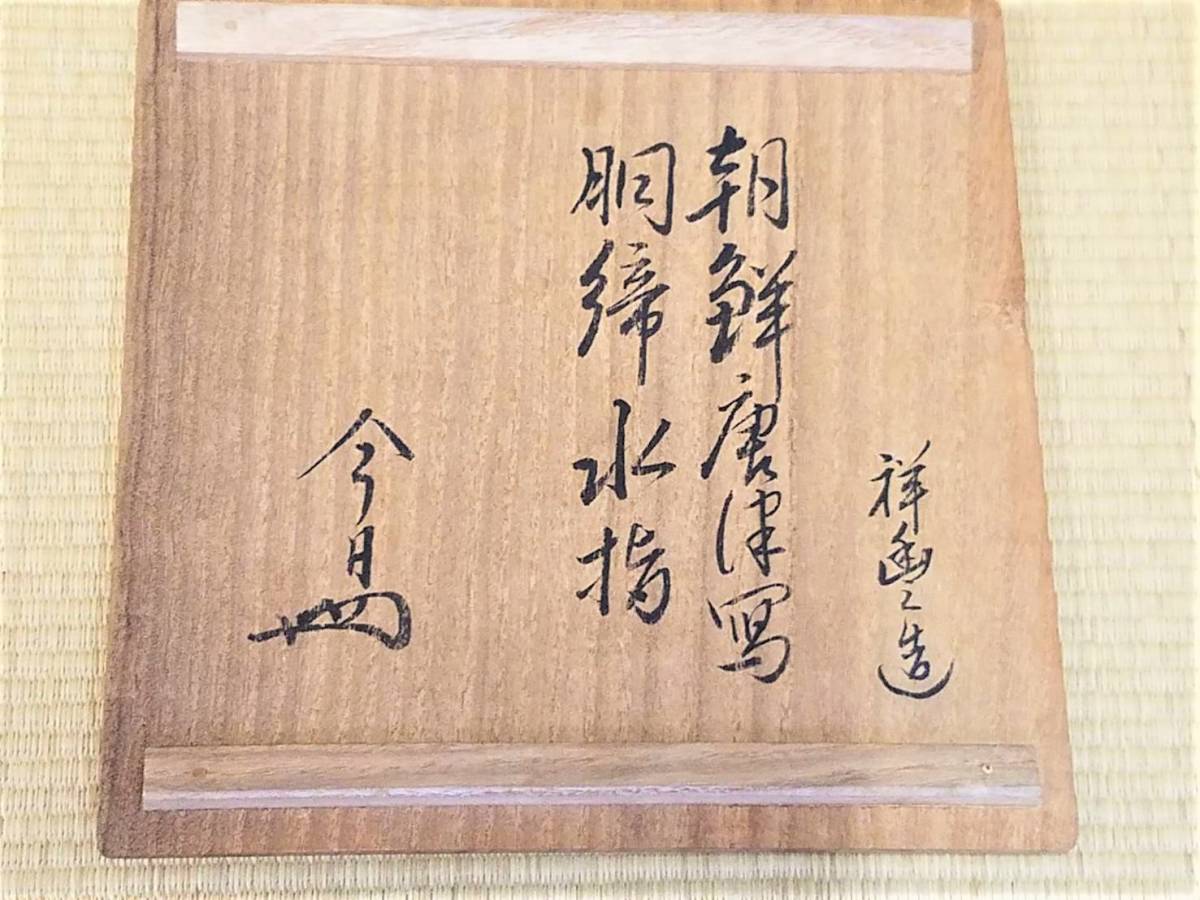 祥幽造
朝鮮唐津寫
胴締水指
今日